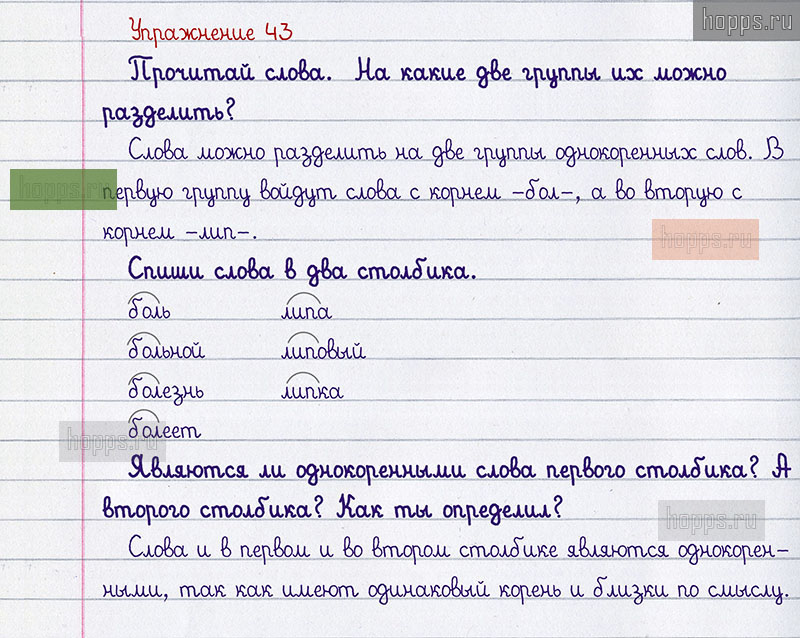 Упражнение 43
hopps.ru
Прочитай слова. На какие две группы их можно
разделить?
Слова можно разделить на две группы однокоренных слов. В
hopps.ru первую группу войдут слова с корнем -бол-, а во вторую с
корнем -лип-.
hopps.ru
Спиши слова в два столбика.
боль липа
больной липовый
болезнь липка
болеет
hopps.ru
Являются ли однокоренными слова первого столбика? А
второго столбика? Как ты определил?
hopps.ru
Слова и в первом и во втором столбике являются однокорен-
ными, так как имеют одинаковый корень и близки по смыслу.